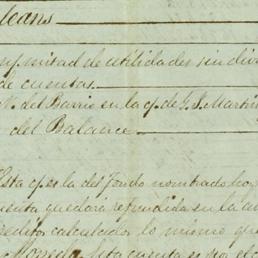 leans
mitad de utilidades sin divi
de cuentas.
del Barrio en la cp. de S. S. Martin
del Balance
Esta cp. es la del fondo nombrado
cuenta quedará refundida en la
calculador lo mismo que
Moneda. Esta cuenta es por el